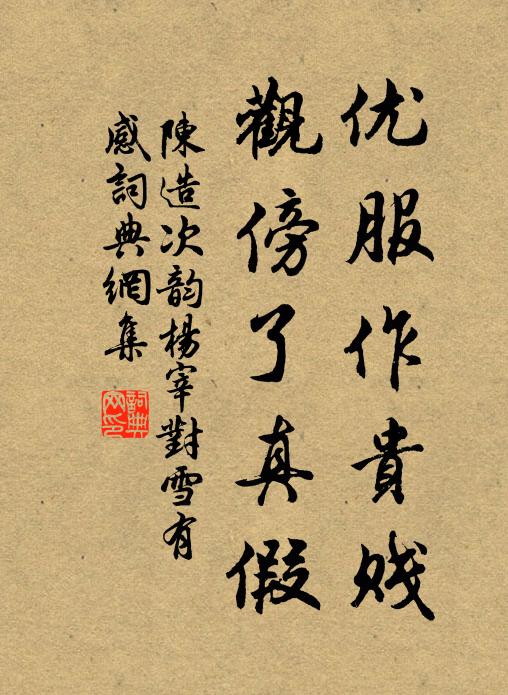 优服作貴贱
觀傍了真假
陳造次韵楊宰對雪有
感詞典網集
詞典
网印